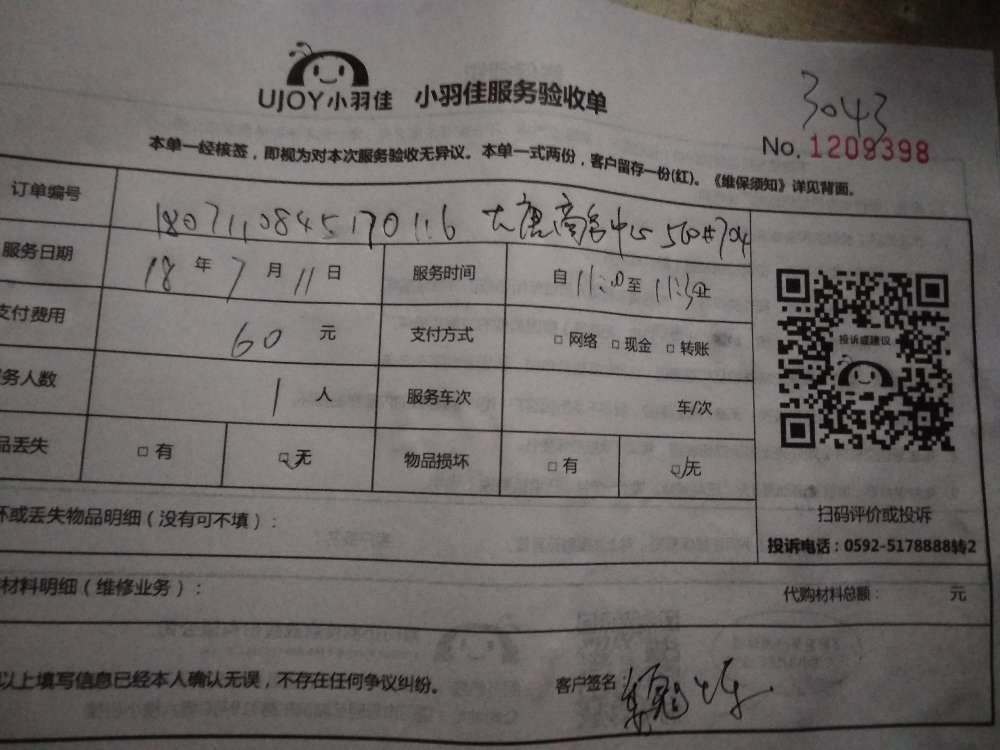 3043
UJOY小羽佳 小羽佳服务验收单
No. 1209398
本单一经核签，即视为对本次服务验收无异议。本单一式两份，客户留存一份(红)。《维保须知》详见背面。
订单编号 1807110845170116 大唐商务中心 560#704
服务日期 18 年 7 月 11 日 服务时间 自 11:00 至 11:30 止
支付费用 60 元 支付方式 □ 网络 □ 现金 □ 转账
务人数 1 人 服务车次 车/次
品丢失 □ 有 □ 无 物品损坏 □ 有 □ 无
投诉或建议
扫码评价或投诉
投诉电话：0592-5178888转2
坏或丢失物品明细（没有可不填）：
材料明细（维修业务）： 代购材料总额： 元
以上填写信息已经本人确认无误，不存在任何争议纠纷。 客户签名：